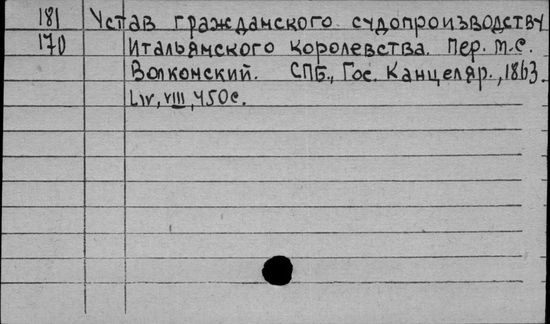 181 Устав гражданского судопроизводству
170 Итальянского Королевства. Пер. М.С.
Волконский. СПБ., Гос. Канцеляр., 1863.
LIV, VIII, 450с.